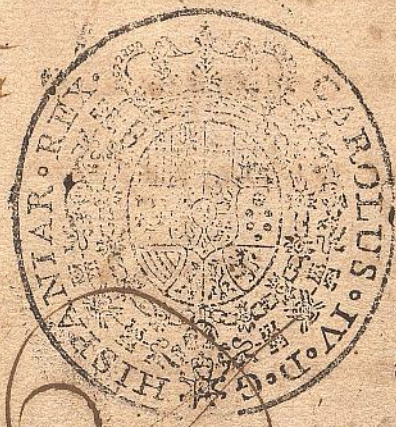 CAROLUS•IV•D•G•HISPANIAR•REX•